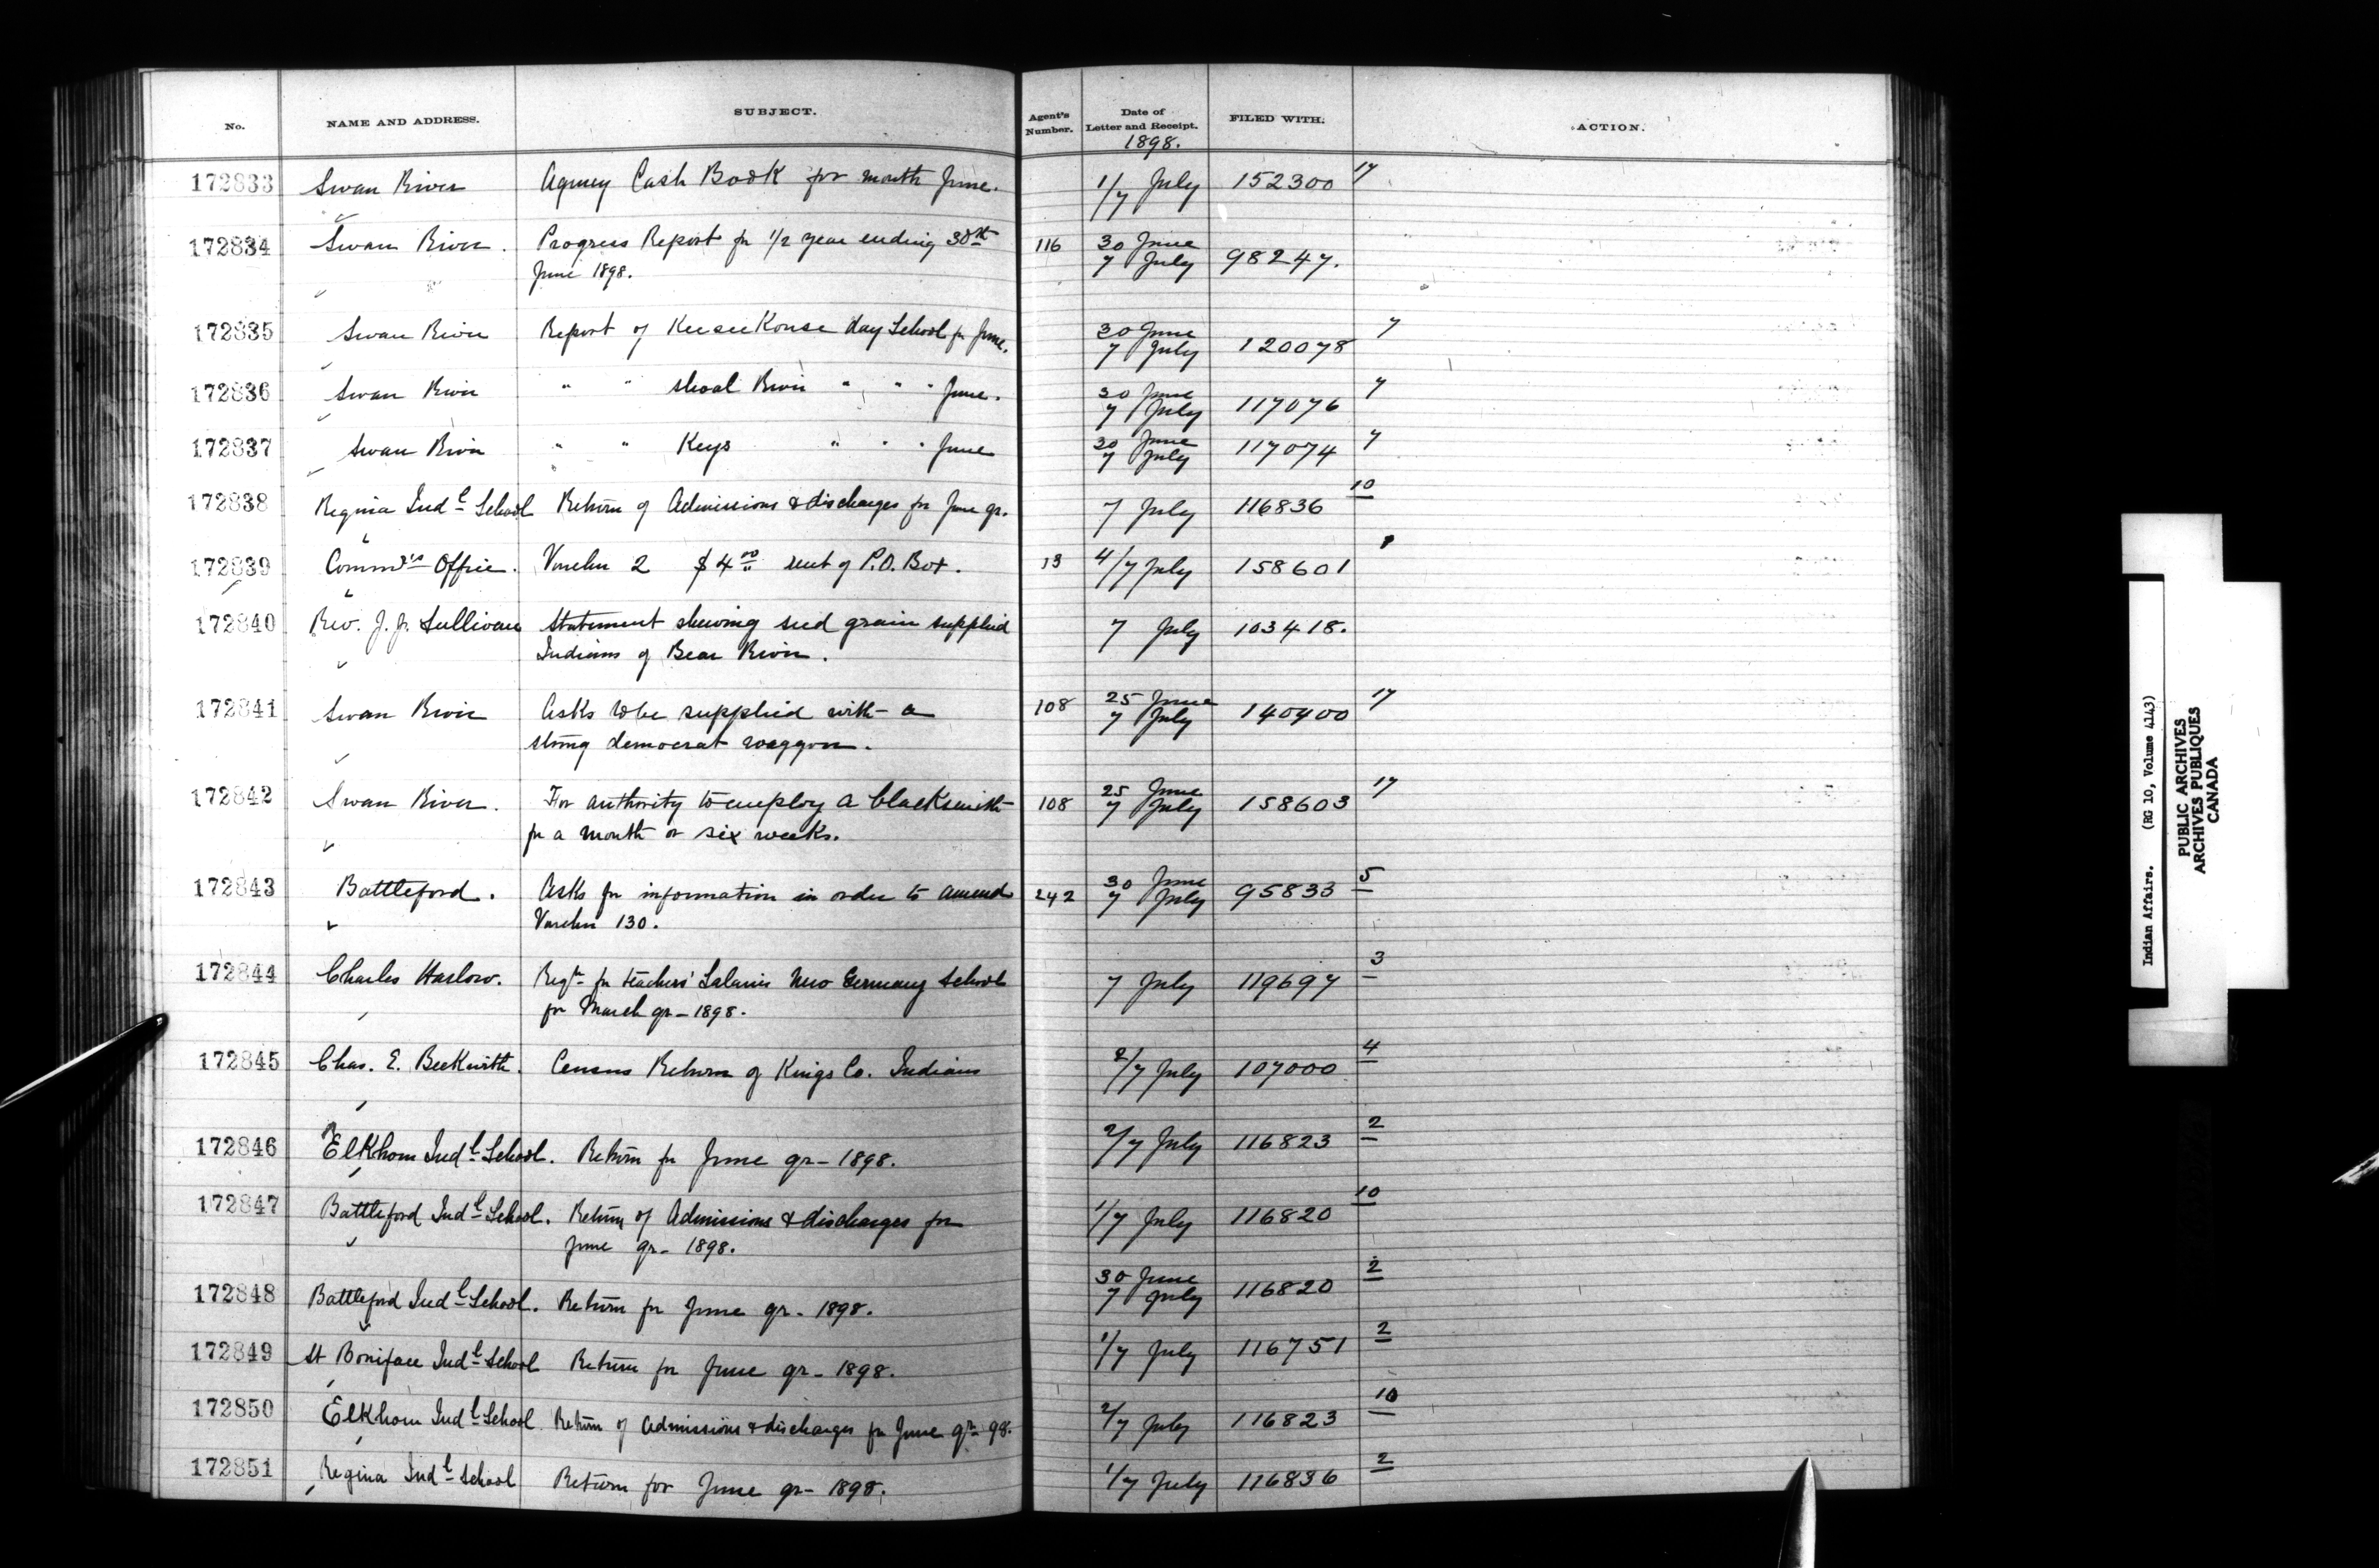 No. NAME AND ADDRESS. SUBJECT. Agent's Number. Date of Letter and Receipt. FILED WITH. ACTION.
1898.
172833 Swan River Agency Cash Book for month June. 1/7 July 152300 17
172834 Swan River. Progress Report for 1/2 year ending 30th 116 30 June 7 July 98247.
June 1898.
172835 Swan River Report of KeeseeKouse day School for June. 30 June 7 July 120078 7
172836 Swan River " " Shoal River " " " June. 30 June 7 July 117076 7
172837 Swan River " " Keys " " " June 30 June 7 July 117074 7
172838 Regina Indl School Return of Admissions & discharges for June qr. 7 July 116836 10
172839 Commr's Office. Voucher 2 $4.00 rent of P.O. Box. 13 4/7 July 158601
172840 Rev. J. J. Sullivan Statement shewing seed grain supplied 7 July 103418.
Indians of Bear River.
172841 Swan River Asks to be supplied with a 108 25 June 7 July 140400 17
strong democrat waggon.
172842 Swan River. For authority to employ a blacksmith 108 25 June 7 July 158603 17
for a month or six weeks.
172843 Battleford. Asks for information in order to amend 242 30 June 7 July 95833 5
Voucher 130.
172844 Charles Harlow. Reqn for teachers' Salaries New Germany School 7 July 119697 3
for March qr - 1898.
172845 Chas. E. Beckwith. Census Return of Kings Co. Indians 2/7 July 107000 4
172846 Elkhorn Indl School. Return for June qr - 1898. 2/7 July 116823 2
172847 Battleford Indl School. Return of Admissions & discharges for 1/7 July 116820 10
June qr - 1898.
172848 Battleford Indl School. Return for June qr - 1898. 30 June 7 July 116820 2
172849 St Boniface Indl School Return for June qr - 1898. 1/7 July 116751 2
172850 Elkhorn Indl School Return of Admissions & discharges for June qr 98. 2/7 July 116823 10
172851 Regina Indl School Return for June qr - 1898. 1/7 July 116836 2
Indian Affairs. (RG 10, Volume 4143)
PUBLIC ARCHIVES
ARCHIVES PUBLIQUES
CANADA